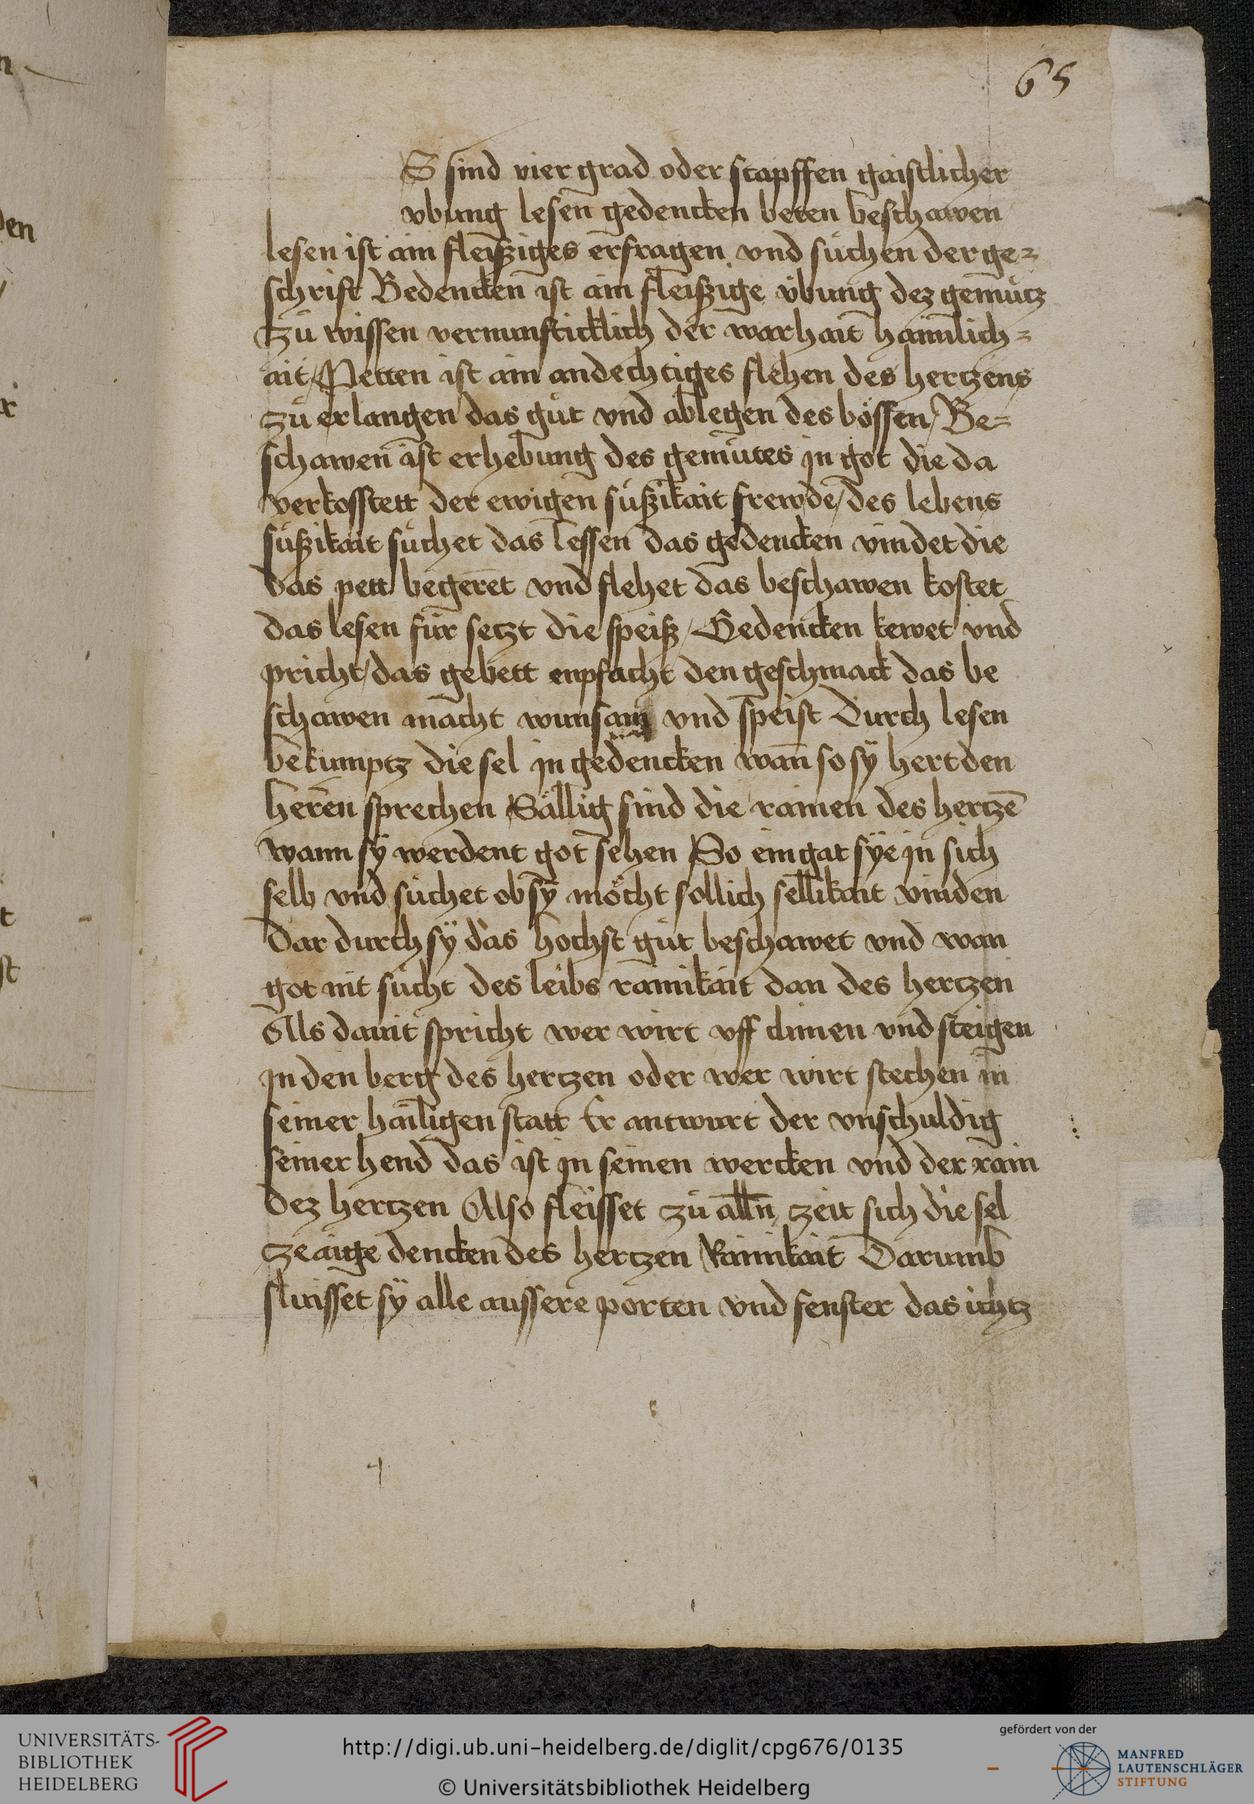 65
S sind vier grad oder stapffen gaistlicher
vbung lesen gedencken beten beschawen
lesen ist ain fleissiges erfragen vnd suchen der ge=
schrift Bedencken ist ain fleissige übung dez gemütz
zů wissen vernunfticklich der warhait haimlich=
ait / Petten ist ain andechtiges flehen des hertzens
zů erlangen das gůt vnd ablegen des bössen / Be=
schawen ist erhebung des gemůtes in got die da
verkosstett der ewigen süßikait frewde / des lebens
süßikait sůchet das lessen das gedencken vindet die
das pett begeret vnd flehet das beschawen kostet
das lesen für setzt die speiß / Gedencken kewet vnd
pricht / das gebett enpfacht den geschmack das be
schawen macht wunsam vnd speist Durch lesen
bekumptz die sel in gedencken wan̄ so sÿ hert den
heren sprechen Sällig sind die rainen des hertzē
wann sÿ werdent got sehen So ein gat sÿe in sich
selb vnd sůchet ob sÿ möcht sollich sellikait vinden
Dar durch sÿ das hochst gůt beschawet vnd wan
got nit sůcht des leibs rainikait dan des hertzen
Als dauit spricht wer wirt vff climen vnd steigen
in den berg des hertzen oder wer wirt stechen in
seiner hailigen statt Er antwurt der vnschuldig
seiner hend das ist in seinen wercken vnd der rain
dez hertzen Also fleisset zů alln̄ zeit sich die sel
ze dencken des hertzen Rainikait Darumb
sy alle aussere porten vnd fenster das ichtz
UNIVERSITÄTS-
BIBLIOTHEK
HEIDELBERG
http://digi.ub.uni-heidelberg.de/diglit/cpg676/0135
© Universitätsbibliothek Heidelberg
gefördert von der
MANFRED
LAUTENSCHLÄGER
STIFTUNG